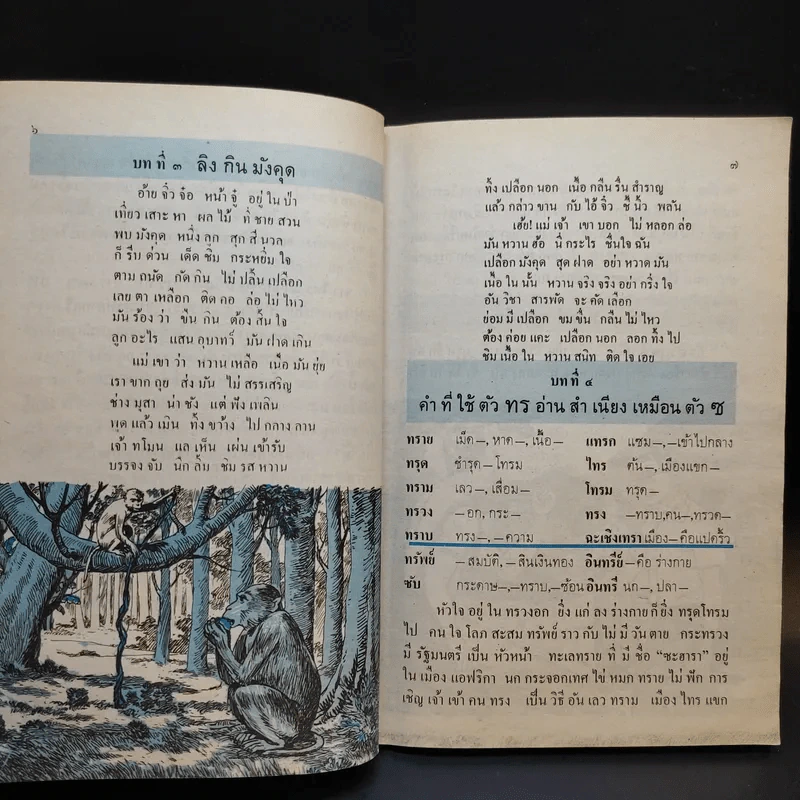 ๖
บทที่ ๓ ลิง กิน มังคุด
อ้าย จิ๋ว จ๋อ หน้า จู๋ อยู่ ใน ป่า
เที่ยว เสาะ หา ผล ไม้ ที่ ชาย สวน
พบ มังคุด หนึ่ง ลูก สุก สี นวล
ก็ รีบ ด่วน เด็ด ชิม กระหยิ่ม ใจ
ตาม ถนัด กัด กิน ไม่ ปลิ้น เปลือก
เลย ตา เหลือก ติด คอ ล่อ ไม่ ไหว
มัน ร้อง ว่า ขืน กิน ต้อง สิ้น ใจ
ลูก อะไร แสน อุบาทว์ มัน ฝาด เกิน
แม่ เขา ว่า หวาน เหลือ เนื้อ มัน ยุ่ย
เรา ขาก ถุย ส่ง มัน ไม่ สรรเสริญ
ช่าง มุสา น่า ชัง แต่ ฟัง เพลิน
พูด แล้ว เมิน ทิ้ง ขว้าง ไป กลาง ลาน
เจ้า ทโมน แล เห็น เผ่น เข้ารับ
บรรจง จับ นึก ลิ้ม ชิม รส หวาน
๗
ทิ้ง เปลือก นอก เนื้อ กลืน รื่น สำราญ
แล้ว กล่าว ขาน กับ ไอ้ จิ๋ว ชี้ นิ้ว พลัน
เฮ้ย! แม่ เจ้า เขา บอก ไม่ หลอก ล่อ
มัน หวาน ฮ้อ นี่ กระไร ชื่นใจ ฉัน
เปลือก มังคุด สุด ฝาด อย่า หวาด มัน
เนื้อ ใน นั้น หวาน จริง จริง อย่า กริ่ง ใจ
อัน วิชา สารพัด จะ คัด เลือก
ย่อม มี เปลือก ขม ขื่น กลืน ไม่ ไหว
ต้อง ค่อย แคะ เปลือก นอก ลอก ทิ้ง ไป
ชิม เนื้อ ใน หวาน สนิท ติด ใจ เอย
บท ที่ ๔
คำ ที่ ใช้ ตัว ทร อ่าน สำ เนียง เหมือน ตัว ซ
ทราย เม็ด–, หาด–, เนื้อ– แทรก แซม–,–เข้าไปกลาง
ทรุด ชำรุด–โทรม ไทร ต้น–, เมืองแขก–
ทราม เลว–, เสื่อม– โทรม ทรุด–
ทรวง –อก, กระ– ทรง –ทราบ,คน–,ทรวด–
ทราบ ทรง–, –ความ ฉะเชิงเทรา เมือง–คือแปดริ้ว
ทรัพย์ –สมบัติ, –สินเงินทอง อินทรีย์–คือ ร่างกาย
ซับ กระดาษ–,–ทราบ,–ซ้อน อินทรี นก–, ปลา–
หัวใจ อยู่ ใน ทรวงอก ยิ่ง แก่ ลง ร่างกาย ก็ ยิ่ง ทรุดโทรม
ไป คน ใจ โลภ สะสม ทรัพย์ ราว กับ ไม่ มี วัน ตาย กระทรวง
มี รัฐมนตรี เป็น หัวหน้า ทะเลทราย ที่ มี ชื่อ “ซะฮารา” อยู่
ใน เมือง แอฟริกา นก กระจอกเทศ ไข่ หมก ทราย ไม่ ฟัก การ
เชิญ เจ้า เข้า คน ทรง เป็น วิธี อัน เลว ทราม เมือง ไทร แขก